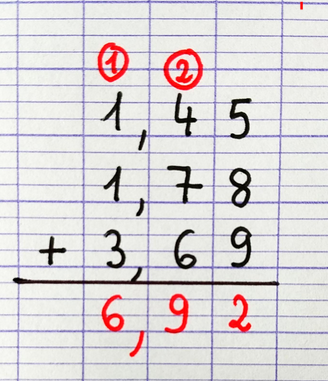 ① ②
1,45
1,78
+ 3,69
6,92